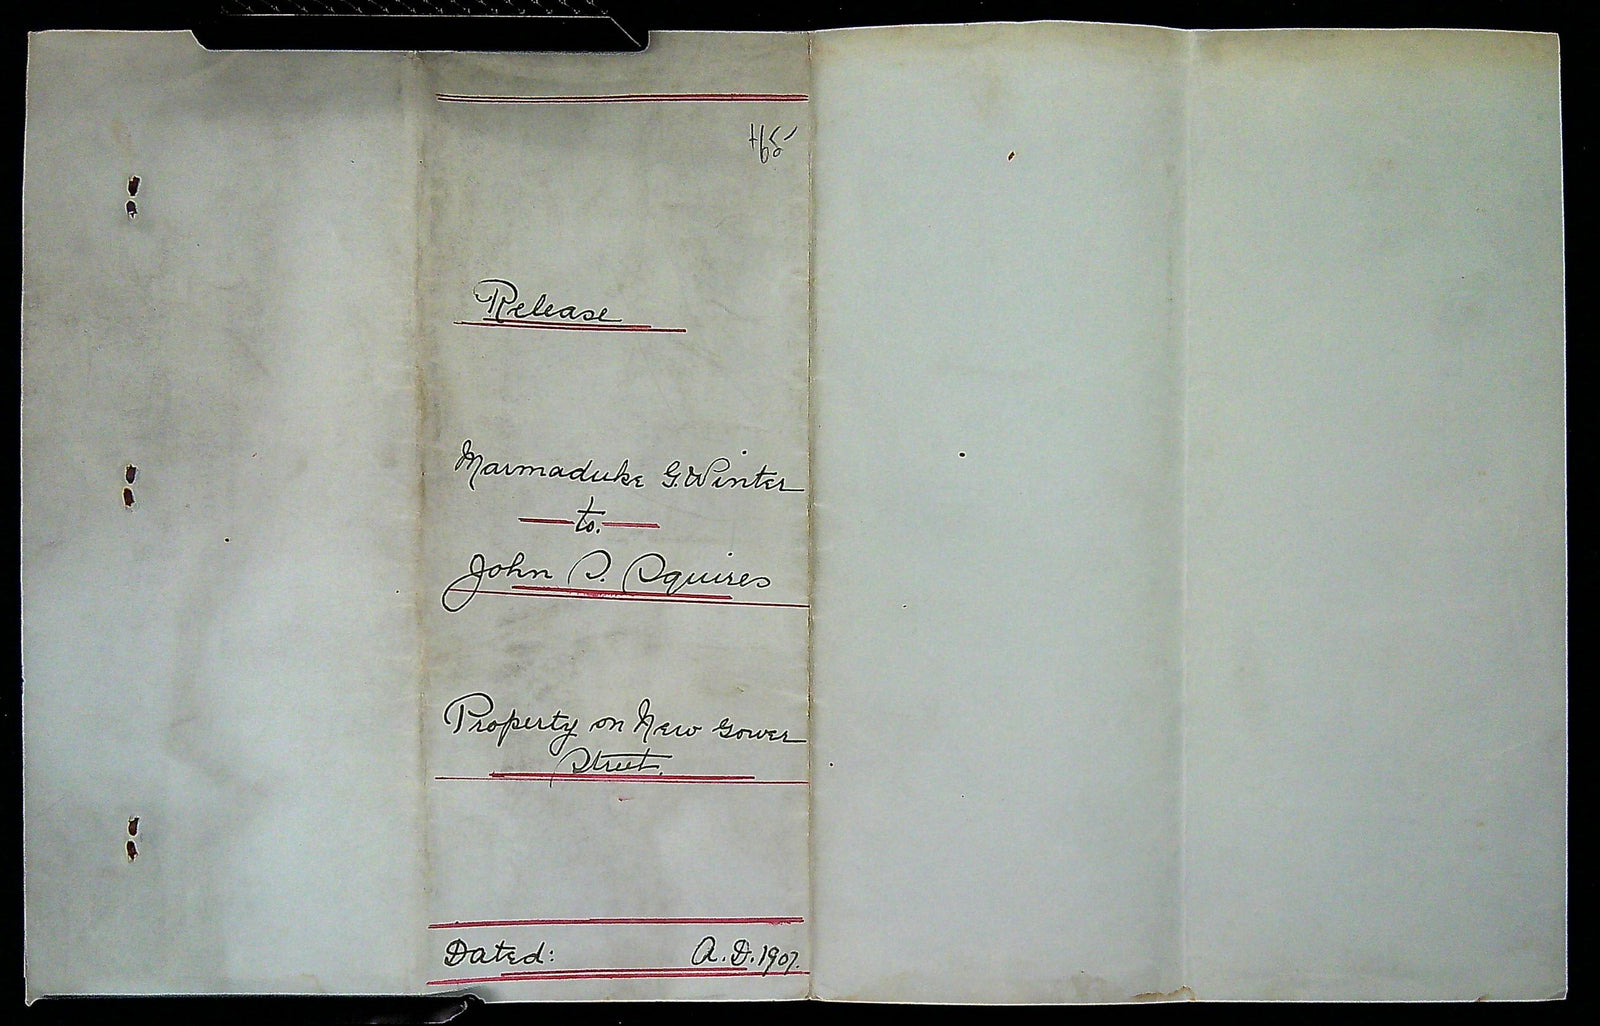 Release
Marmaduke G. Winter
to.
John S. Squires
Property on New Gower
Street.
Dated: A.D. 1907.